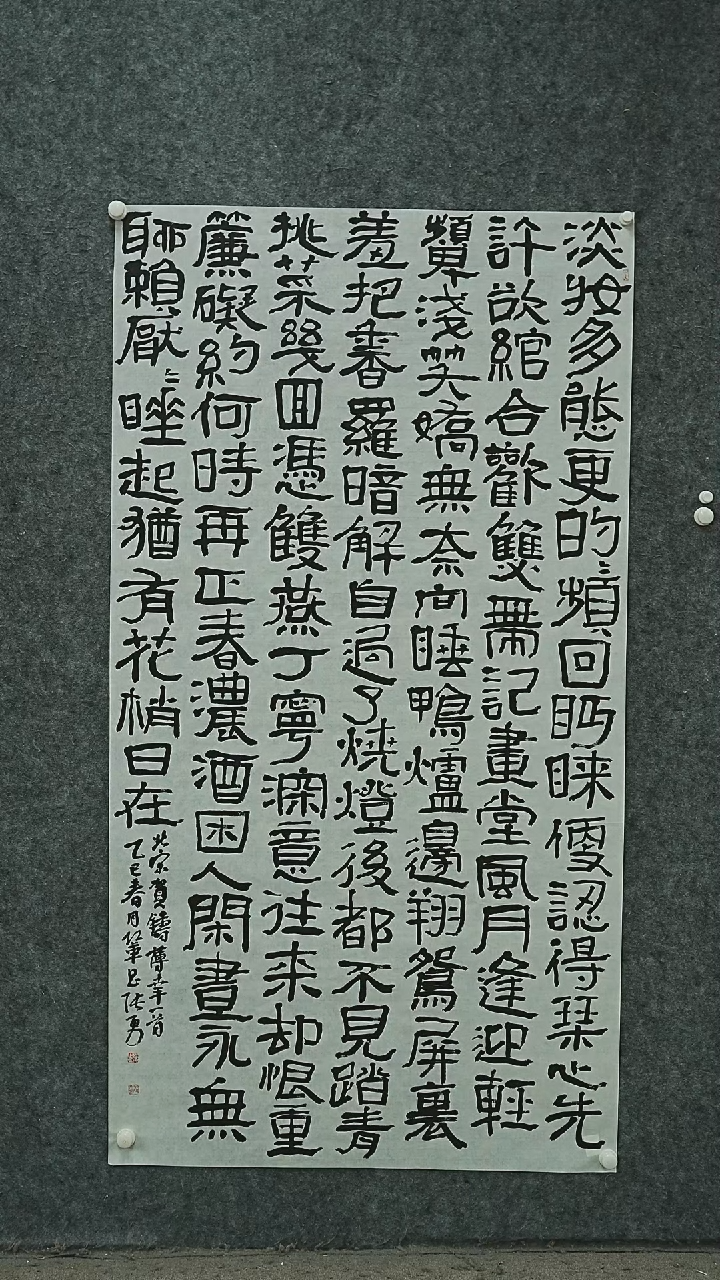 淡妝多態更的〻頻回眄睞便認得琹心先
許欲綰合歡雙帶記畫堂風月逢迎輕
顰淺笑嬌無奈向睡鴨爐邊翔鴛屏裏
羞把香羅暗解自過了燒燈後都不見踏青
挑菜幾回憑雙燕丁寧深意往来却恨重
簾礙約何時再正春濃酒困人閑晝永無
聊賴厭〻睡起猶有花梢日在
北宋賀鑄薄幸一首
乙巳春月張勇